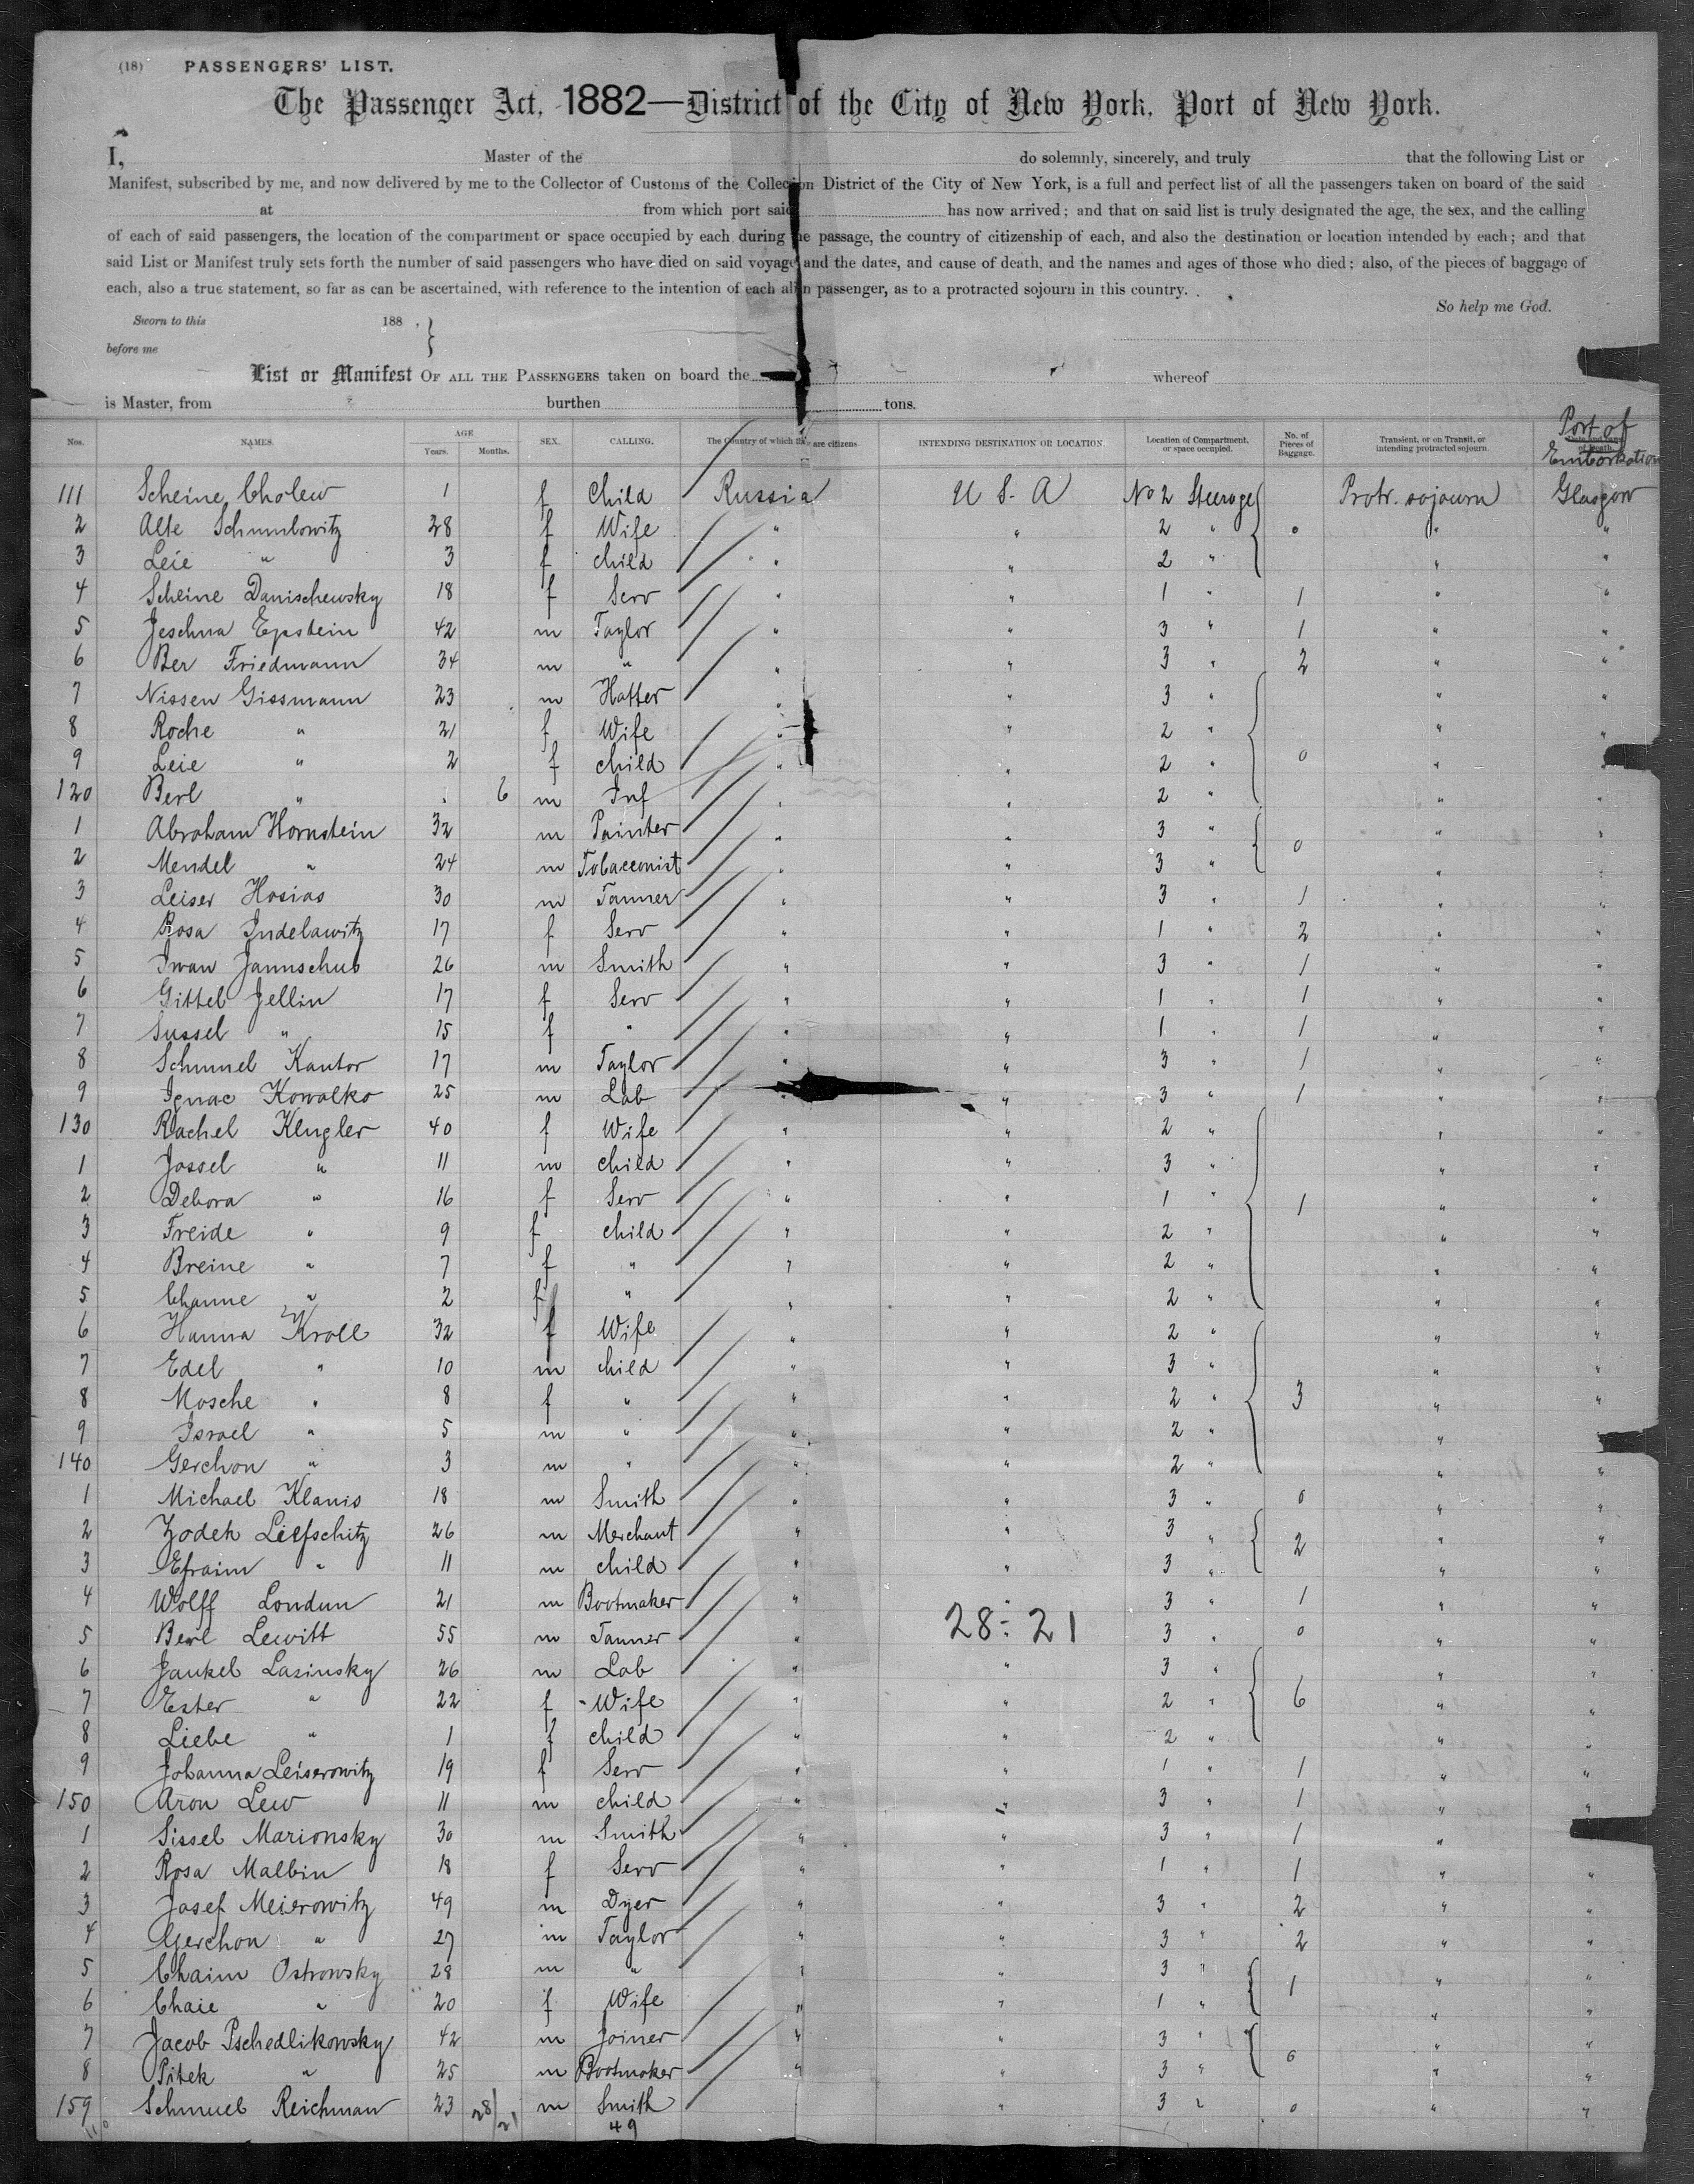 (18) PASSENGERS' LIST.
The Passenger Act, 1882—District of the City of New York, Port of New York.
I, Master of the do solemnly, sincerely, and truly that the following List or
Manifest, subscribed by me, and now delivered by me to the Collector of Customs of the Collection District of the City of New York, is a full and perfect list of all the passengers taken on board of the said
at from which port said has now arrived; and that on said list is truly designated the age, the sex, and the calling
of each of said passengers, the location of the compartment or space occupied by each during the passage, the country of citizenship of each, and also the destination or location intended by each; and that
said List or Manifest truly sets forth the number of said passengers who have died on said voyage and the dates, and cause of death, and the names and ages of those who died; also, of the pieces of baggage of
each, also a true statement, so far as can be ascertained, with reference to the intention of each alien passenger, as to a protracted sojourn in this country.
So help me God.
Sworn to this 188 ,
before me
List or Manifest OF ALL THE PASSENGERS taken on board the whereof
is Master, from burthen tons.
Nos. NAMES. AGE Years. Months. SEX. CALLING. The Country of which they are citizens. INTENDING DESTINATION OR LOCATION. Location of Compartment, or space occupied. No. of Pieces of Baggage. Transient, or on Transit, or intending protracted sojourn. Port of Embarkation
111 Scheine Cholew 1 f Child Russia U S. A No 2 Steerage Protr. sojourn Glasgow
2 Alte Schmulowitz 28 f Wife " " 2 " 0 " "
3 Leie " 3 f child " " 2 " " "
4 Scheine Danischewsky 18 f Serv " " 1 " 1 " "
5 Jeschna Epstein 42 m Taylor " " 3 " 1 " "
6 Ber Friedmann 34 m " " " 3 " 2 " "
7 Nissen Gissmann 23 m Hatter " " 3 " " "
8 Roche " 21 f Wife " " 2 " " "
9 Leie " 2 f child " " 2 " 0 " "
120 Berl " 6 m Inf " " 2 " " "
1 Abraham Hornstein 32 m Painter " " 3 " " "
2 Mendel " 24 m Tobacconist " " 3 " 0 " "
3 Leiser Hosias 30 m Tanner " " 3 " 1 " "
4 Rosa Indelawitz 17 f Serv " " 1 " 2 " "
5 Iwan Jannschub 26 m Smith " " 3 " 1 " "
6 Gittel Jellin 17 f Serv " " 1 " 1 " "
7 Sussel " 15 f " " " 1 " 1 " "
8 Schmuel Kantor 17 m Taylor " " 3 " 1 " "
9 Ignac Kowalko 25 m Lab " " 3 " 1 " "
130 Rachel Klugler 40 f Wife " " 2 " " "
1 Jossel " 11 m child " " 3 " " "
2 Debora " 16 f Serv " " 1 " 1 " "
3 Freide " 9 f child " " 2 " " "
4 Breine " 7 f " " " 2 " " "
5 Channe " 2 f " " " 2 " " "
6 Hanna Kroll 32 f Wife " " 2 " " "
7 Edel " 10 m child " " 3 " " "
8 Mosche " 8 f " " " 2 " 3 " "
9 Israel " 5 m " " " 2 " " "
140 Gerchon " 3 m " " " 2 " " "
1 Michael Klanis 18 m Smith " " 3 " 0 " "
2 Zodek Liefschitz 26 m Merchant " " 3 " 2 " "
3 Efraim " 11 m child " " 3 " " "
4 Wolff Londun 21 m Bootmaker " " 3 " 1 " "
5 Berl Lewitt 55 m Tanner " 28-21 3 " 0 " "
6 Jankel Lasinsky 26 m Lab " " 3 " " "
7 Ester " 22 f Wife " " 2 " 6 " "
8 Liebe " 1 f child " " 2 " " "
9 Johanna Leiserowitz 19 f Serv " " 1 " 1 " "
150 Aron Lew 11 m child " " 3 " 1 " "
1 Sissel Marionsky 30 m Smith " " 3 " 1 "
2 Rosa Malbin 18 f Serv " " 1 " 1 " "
3 Josef Meierowitz 49 m Dyer " " 3 " 2 " "
4 Gerchon " 27 m Taylor " " 3 " 2 " "
5 Chaim Ostrowsky 28 m " " " 3 " 1 " "
6 Chaie " 20 f Wife " " 1 " " "
7 Jacob Pschedlikowsky 42 m Joiner " " 3 " " "
8 Pitek " 25 m Bootmaker " " 3 " 0 " "
159 Schmuel Reichman 23 m Smith " 3 " 0 " "
28/21 49